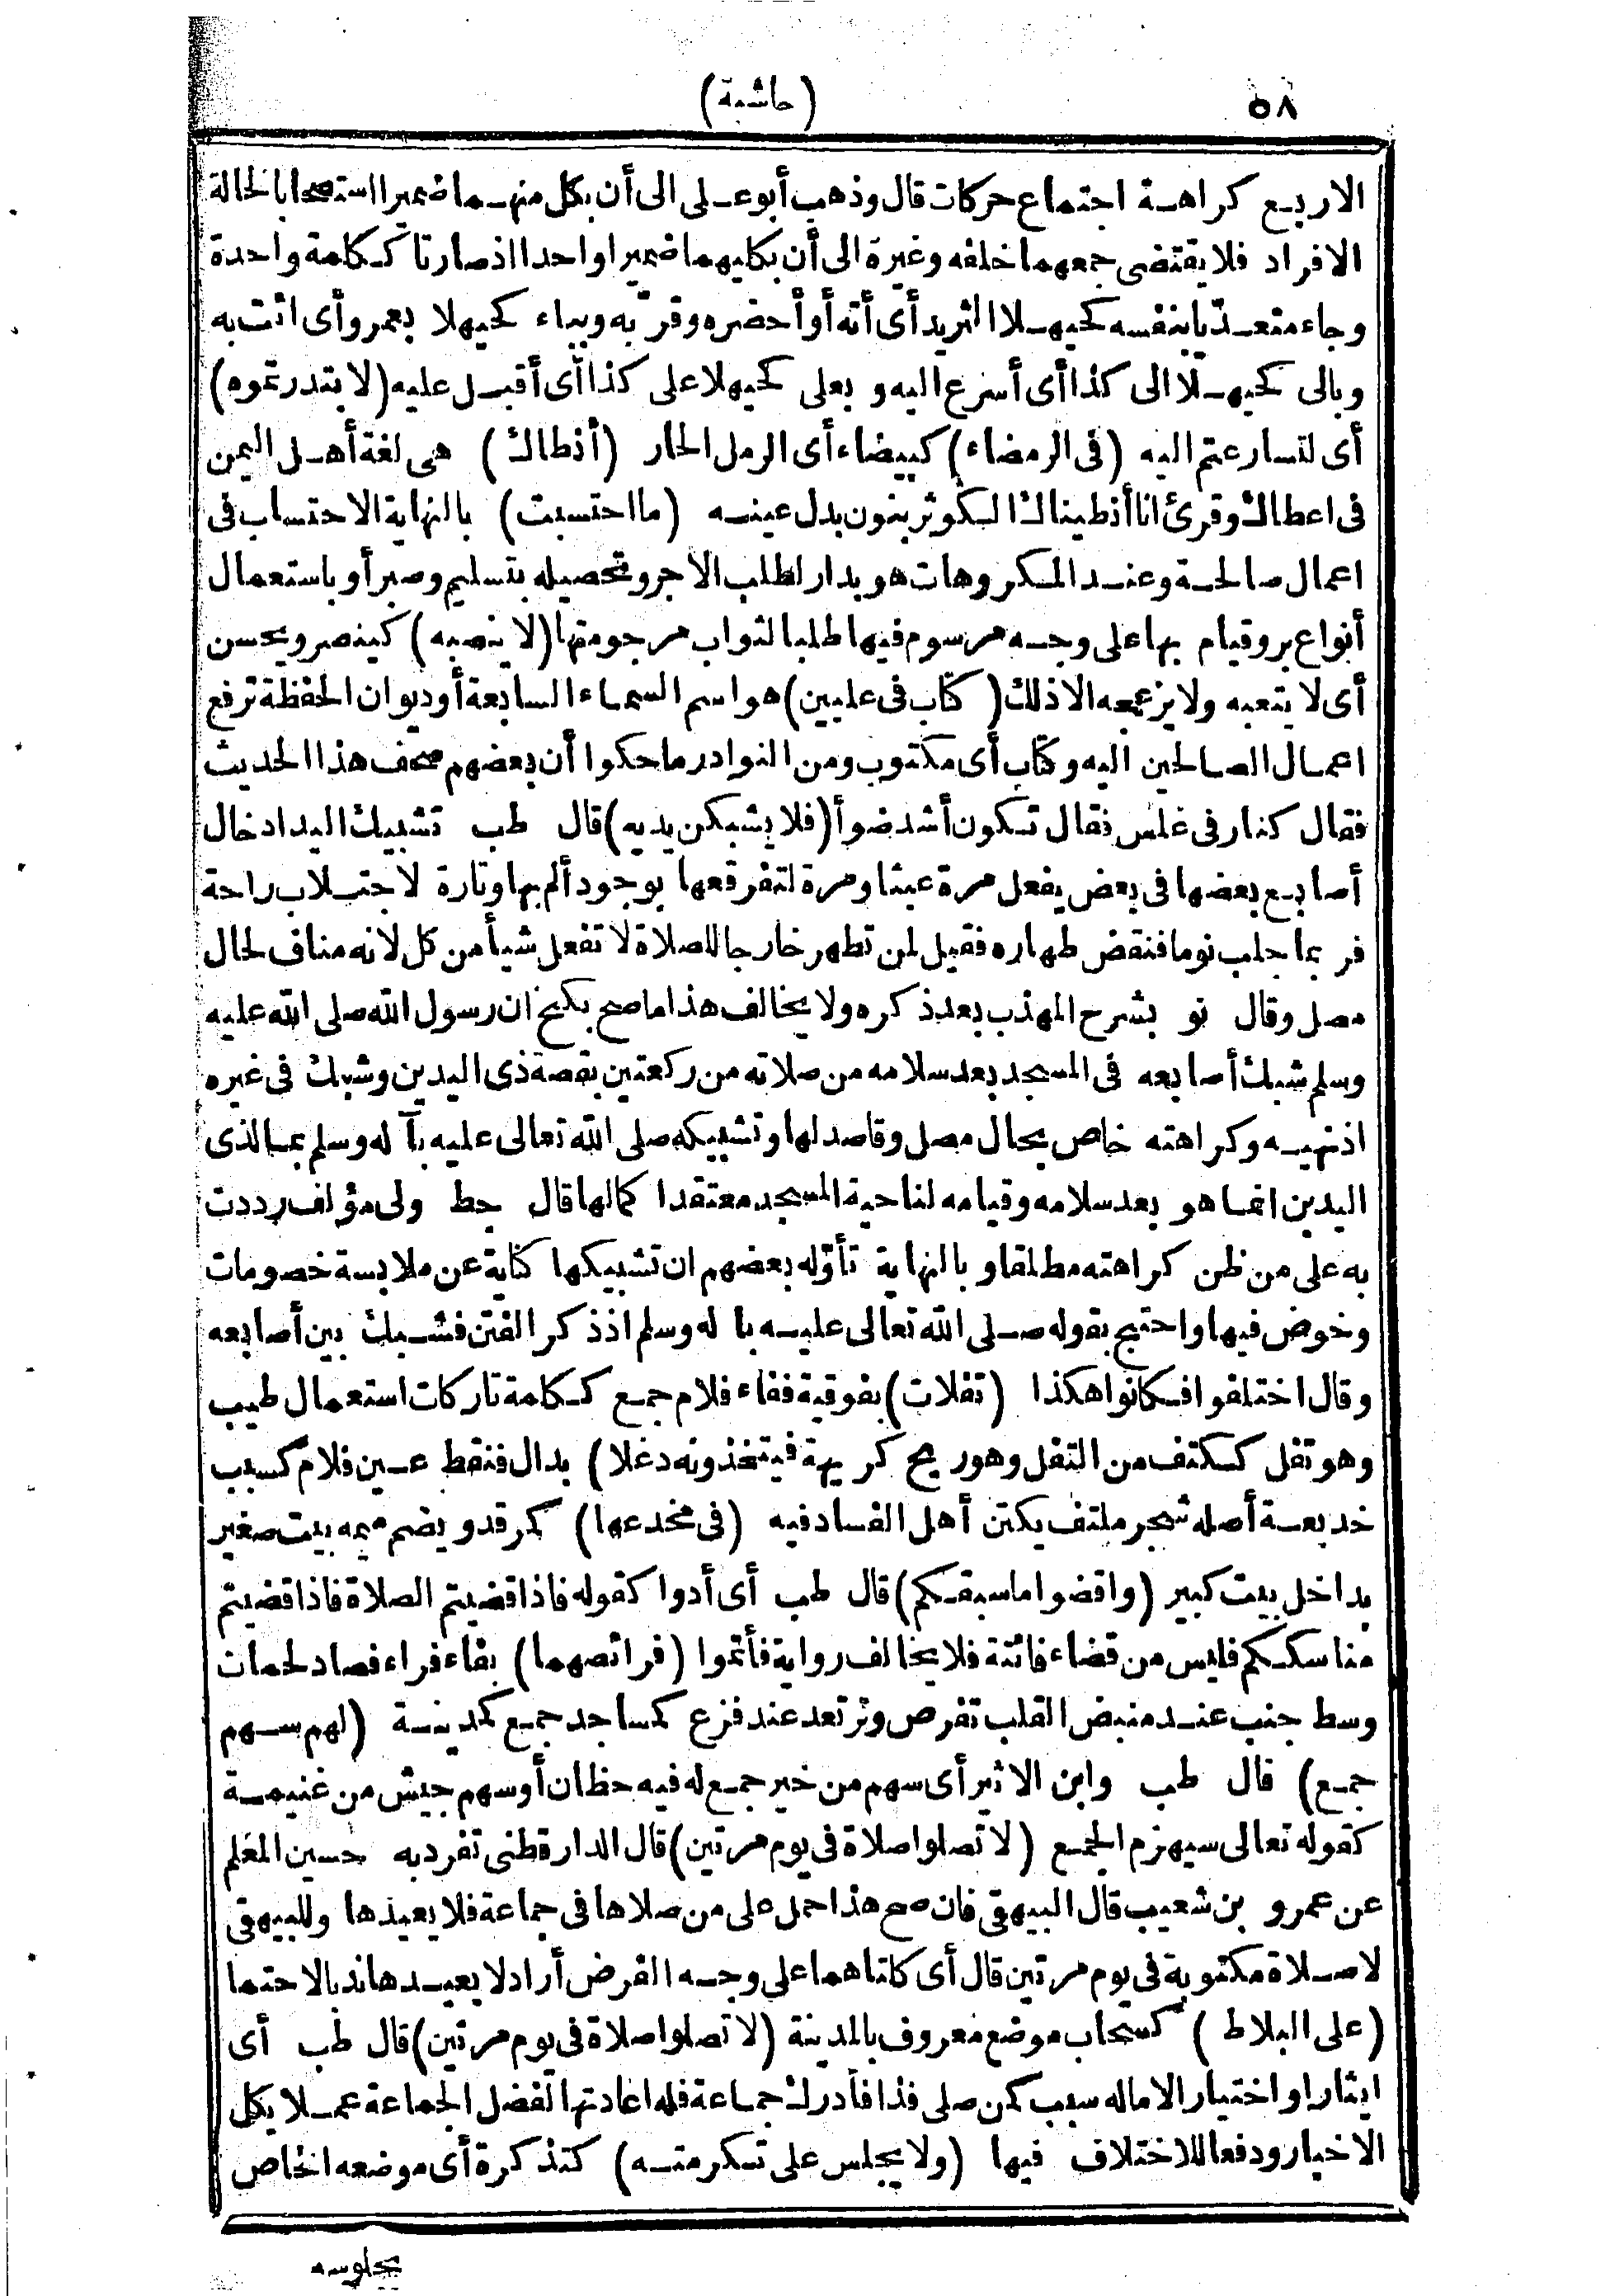 ٥٨
(حاشية)
الاربع كراهة اجتماع حركات قال وذهب أبوعلى الى أن بكل منهما ضميرا استصحابا لحالة
الافراد فلا يقتضى جمعهما خلفه وغيره الى أن بكليهما ضميرا واحدا اذ صارتا ككلمة واحدة
وجاء متعديا بنفسه كحيهلا الثريد أى أته أو أحضره وقربه وبباء كحيهلا بعمرو أى ائت به
وبالى كحيهلا الى كذا أى أسرع اليه وبعلى كحيهلا على كذا أى أقبل عليه (لابتدرتموه)
أى لتسارعتم اليه (فى الرمضاء) كبيضاء أى الرمل الحار (أنطاك) هى لغة أهل اليمن
فى اعطاك وقرئ انا أنطيناك الكوثر بنون بدل عينه (ما احتسبت) بالنهاية الاحتساب فى
اعمال صالحة وعند المكروهات هو بدار لطلب الاجر وتحصيله بتسليم وصبر أو باستعمال
أنواع بر وقيام بها على وجه مرسوم فيها طلبا لثواب مرجو منها (لا ينصبه) كينصر ويحسن
أى لا يتعبه ولا يزعجه الا ذلك (كتاب فى عليين) هو اسم السماء السابعة أو ديوان الحفظة ترفع
اعمال الصالحين اليه وكتاب أى مكتوب ومن النوادر ما حكوا أن بعضهم صحف هذا الحديث
فقال كنار فى غلس فقال تكون أشد ضوأ (فلا يشبكن يديه) قال طب تشبيك اليد ادخال
أصابع بعضها فى بعض يفعل مرة عبثا ومرة لتفرقعها بوجود ألم بها وتارة لاجتلاب راحة
فربما جلب نوما فنقض طهاره فقيل لمن تطهر خارجا للصلاة لا تفعل شيأ من كل لانه مناف لحال
مصل وقال نو بشرح المهذب بعد ذكره ولا يخالف هذا ما صح بكيخ ان رسول الله صلى الله عليه
وسلم شبك أصابعه فى المسجد بعد سلامه من صلاته من ركعتين بقصة ذى اليدين وشبك فى غيره
اذ نهيه وكراهته خاص بحال مصل وقاصد لها وتشبيكه صلى الله تعالى عليه بآله وسلم بمالذى
اليدين انما هو بعد سلامه وقيامه لناحية المسجد معتقدا كمالها قال جط ولى مؤلف رددت
به على من ظن كراهته مطلقا وبالنهاية تأوله بعضهم ان تشبيكها كناية عن ملابسة خصومات
وخوض فيها واحتج بقوله صلى الله تعالى عليه باله وسلم اذ ذكر الفتن فشبك بين أصابعه
وقال اختلفوا فكانوا هكذا (تفلات) بفوقية ففاء فلام جمع ككلمة تاركات استعمال طيب
وهو تفل ككتف من التفل وهو ريح كريهة (فيتخذونه دغلا) بدال فنقط عين فلام كسبب
خديعة أصله شجر ملتف يكتن أهل الفساد فيه (فى مخدعها) كمرقد ويضم ميمه بيت صغير
بداخل بيت كبير (واقضوا ما سبقكم) قال طب أى أدوا كقوله فاذا قضيتم الصلاة فاذا قضيتم
مناسككم فليس من قضاء فائتة فلا يخالف رواية فأتموا (فرائصهما) بفاء فراء فصاد لحمات
وسط جنب عند منبض القلب تفرص وترتعد عند فزع كمساجد جمع كمدينة (لهم سهم
جمع) قال طب وابن الاثير أى سهم من خير جمع له فيه حظان أو سهم جيش من غنيمة
كقوله تعالى سيهزم الجمع (لا تصلوا صلاة فى يوم مرتين) قال الدارقطنى تفرد به حسين المعلم
عن عمرو بن شعيب قال البيهقى فان صح هذا حمل على من صلاها فى جماعة فلا يعيدها وللبيهقى
لا صلاة مكتوبة فى يوم مرتين قال أى كلتاهما على وجه الفرض أراد لا يعيدها ندبا لا حتما
(على البلاط) كسحاب موضع معروف بالمدينة (لا تصلوا صلاة فى يوم مرتين) قال طب أى
ايثارا واختيارا لا ماله سبب كمن صلى فذا فأدرك جماعة فله اعادتها لفضل الجماعة عملا بكل
الاخبار ودفعا للاختلاف فيها (ولا يجلس على تكرمته) كتذكرة أى موضعه الخاص
بجلوسه